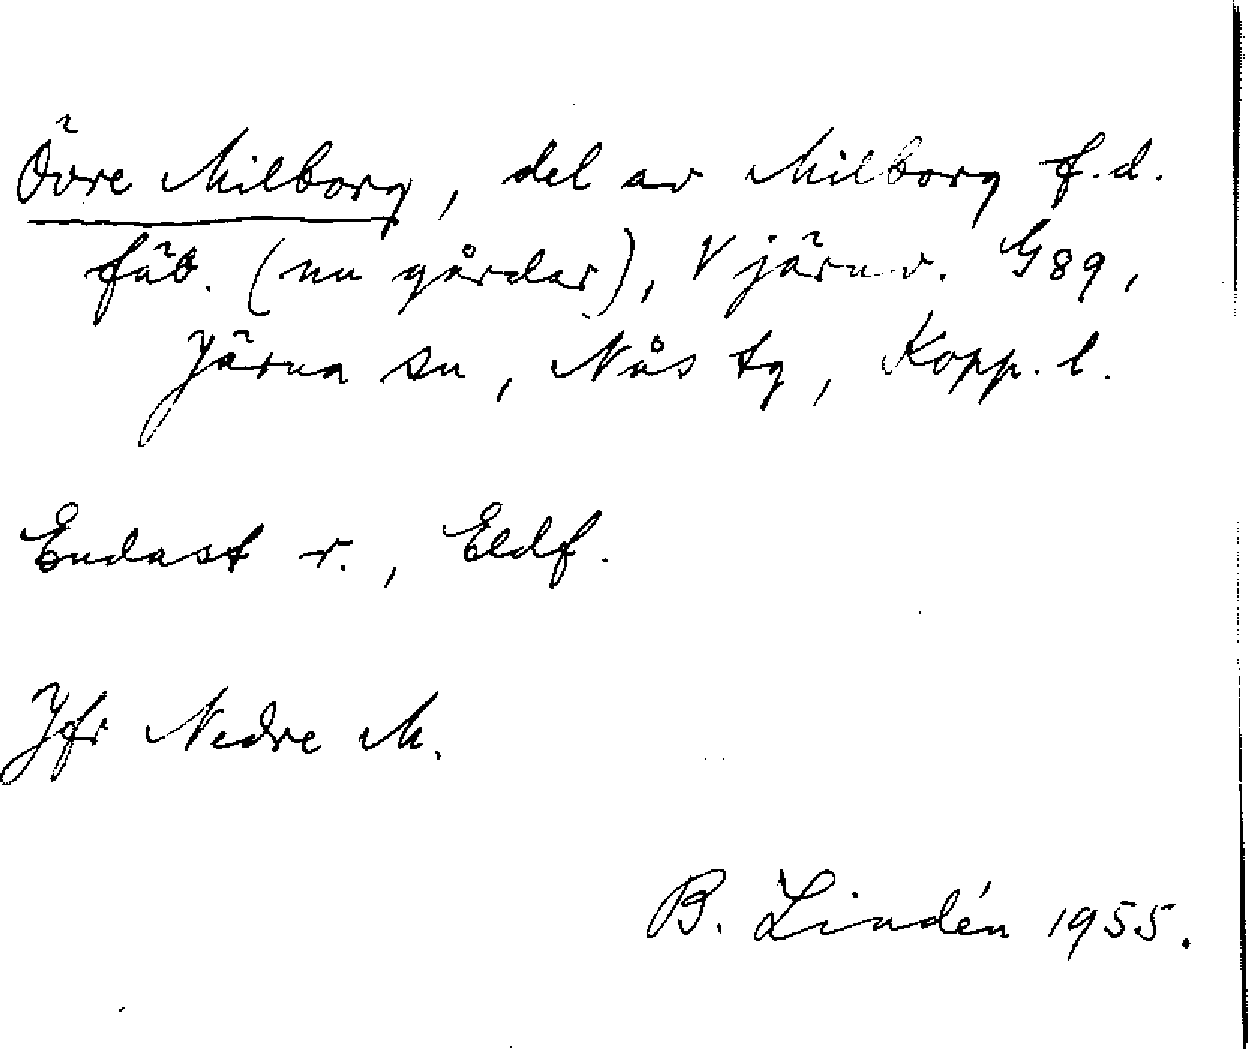 Övre Milborg, del av Milborg f.d.
fäb. (nu gårdar), V järnv. G89,
Järna sn, Nås tg, Kopp. l.
Endast r., Eldf.
Jfr Nedre M.
B. Lindén 1955.